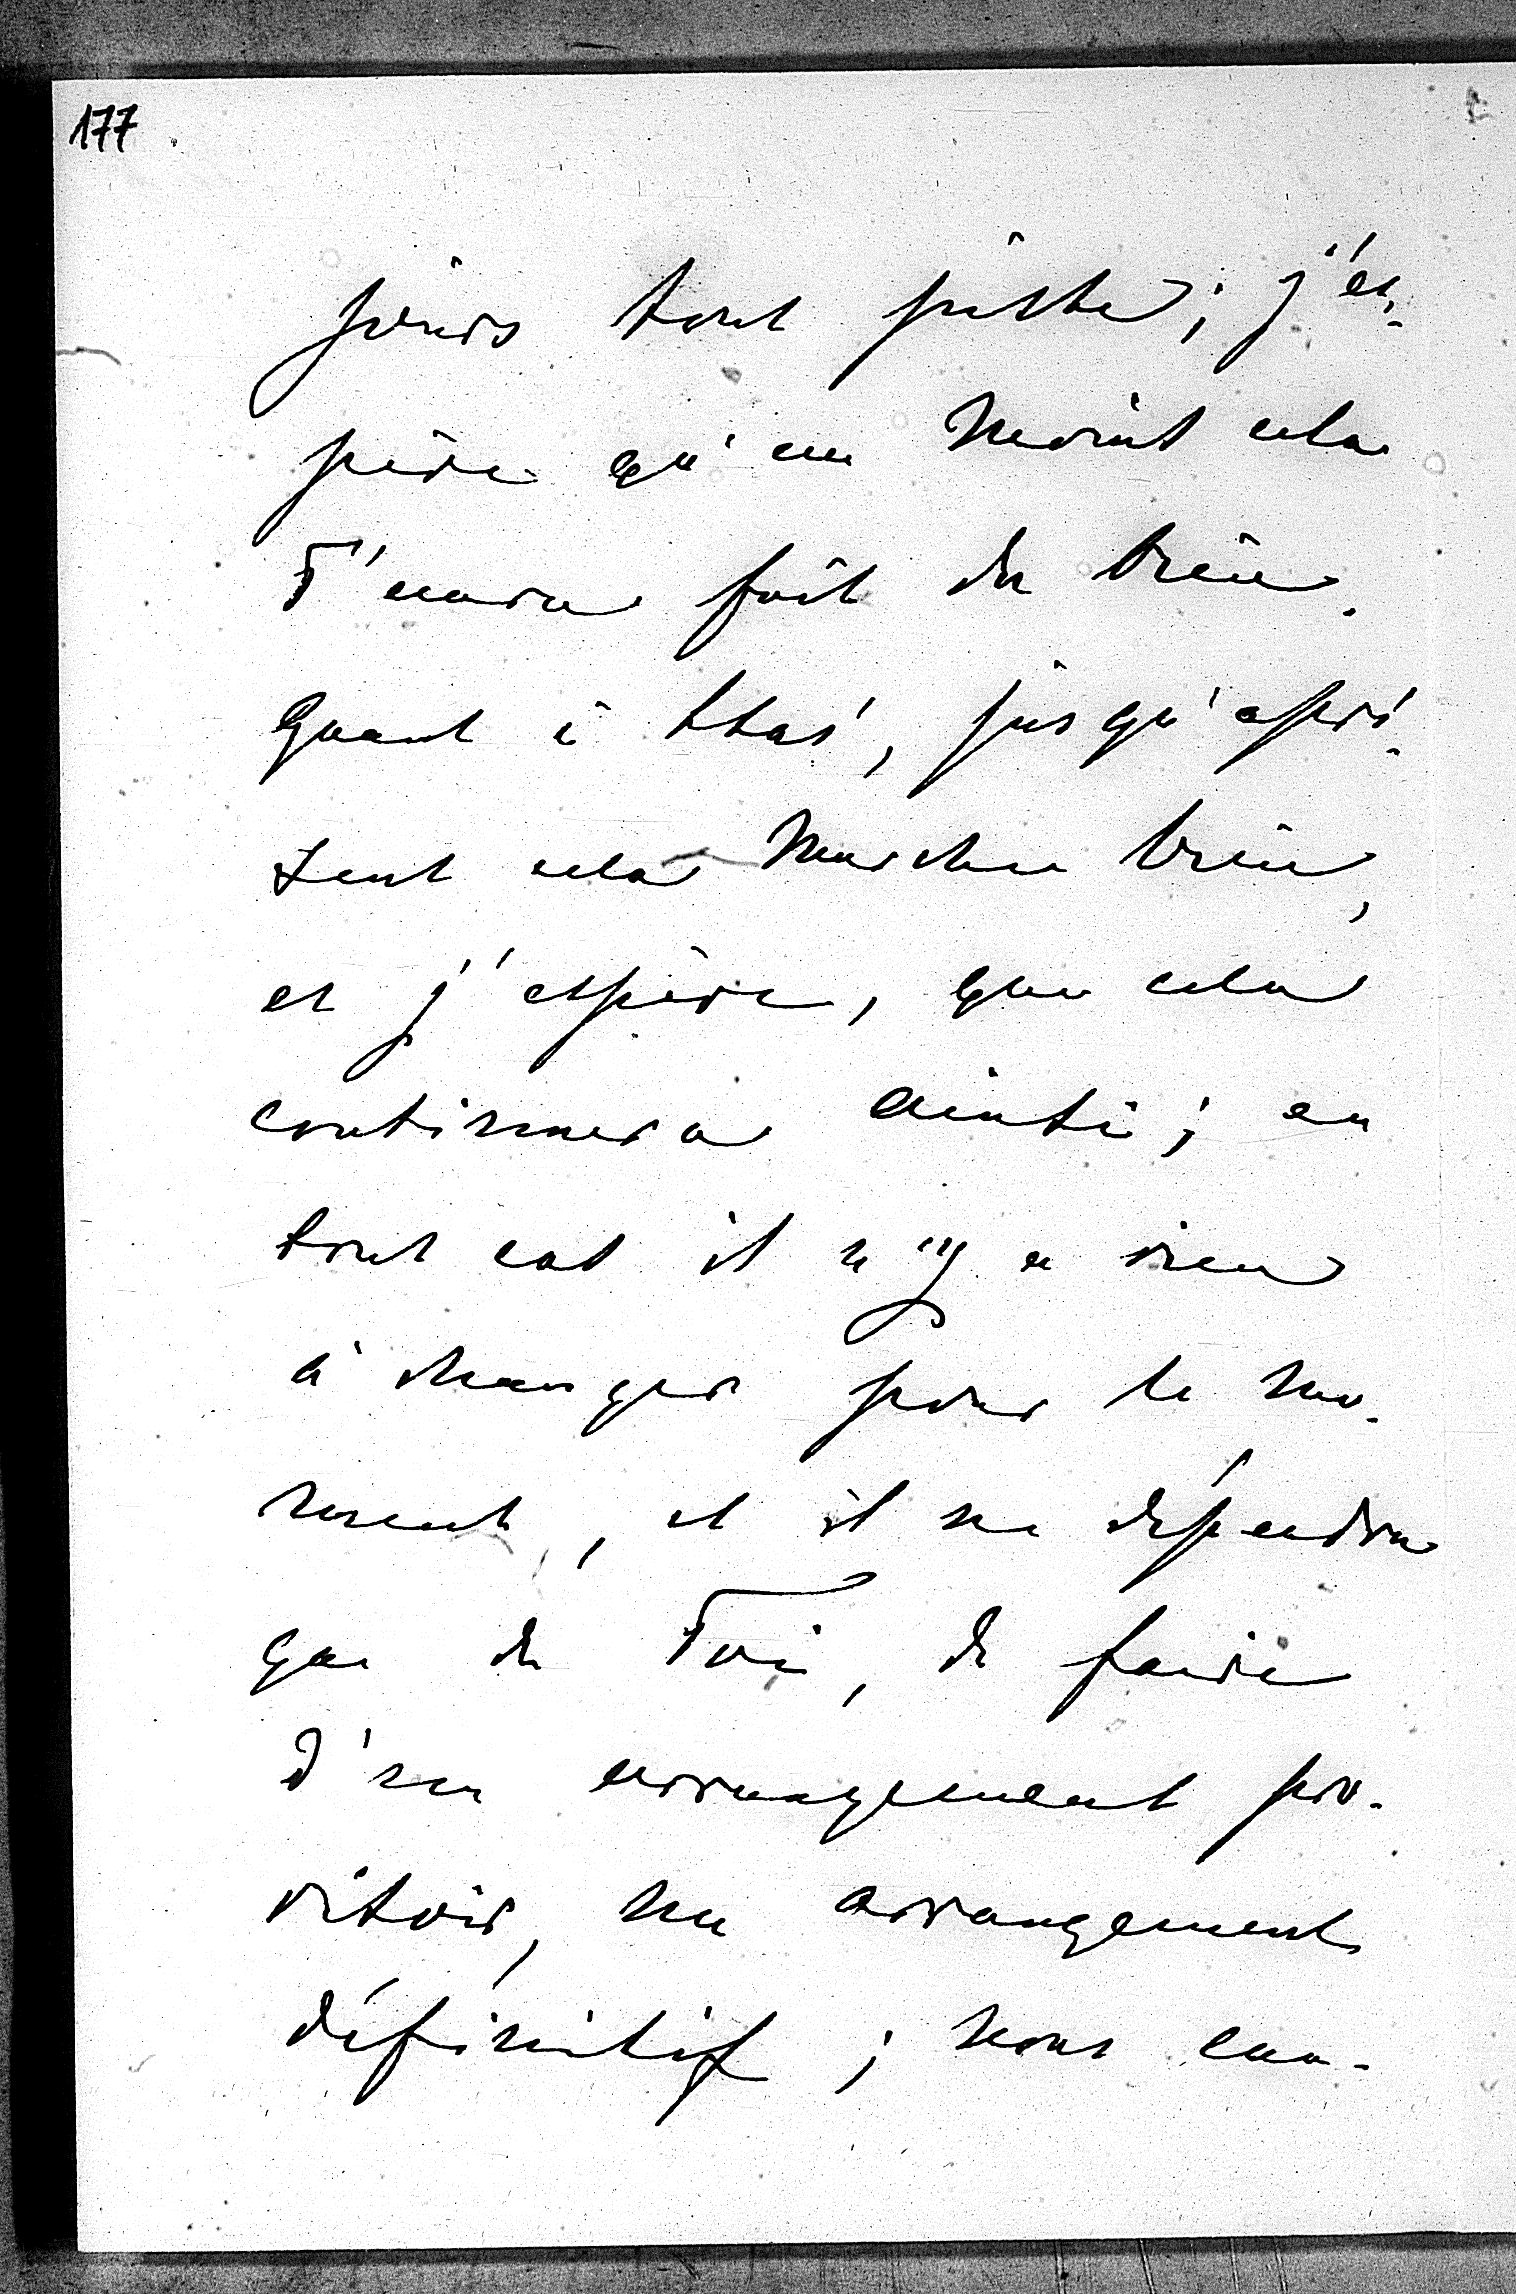 177
jours tout juste; j'es-
père qu'au moins cela
T'aura fait du bien.
Quant à Stas', jusqu'apré-
sent cela marche bien,
et j'espère, que cela
continuera ainsi; en
tout cas il n'y a rien
à changer pour le mo-
ment, et il ne dépendra
que de Toi, de faire
d'un arrangement pro-
visoir, un arrangement
définitif; nous cau-